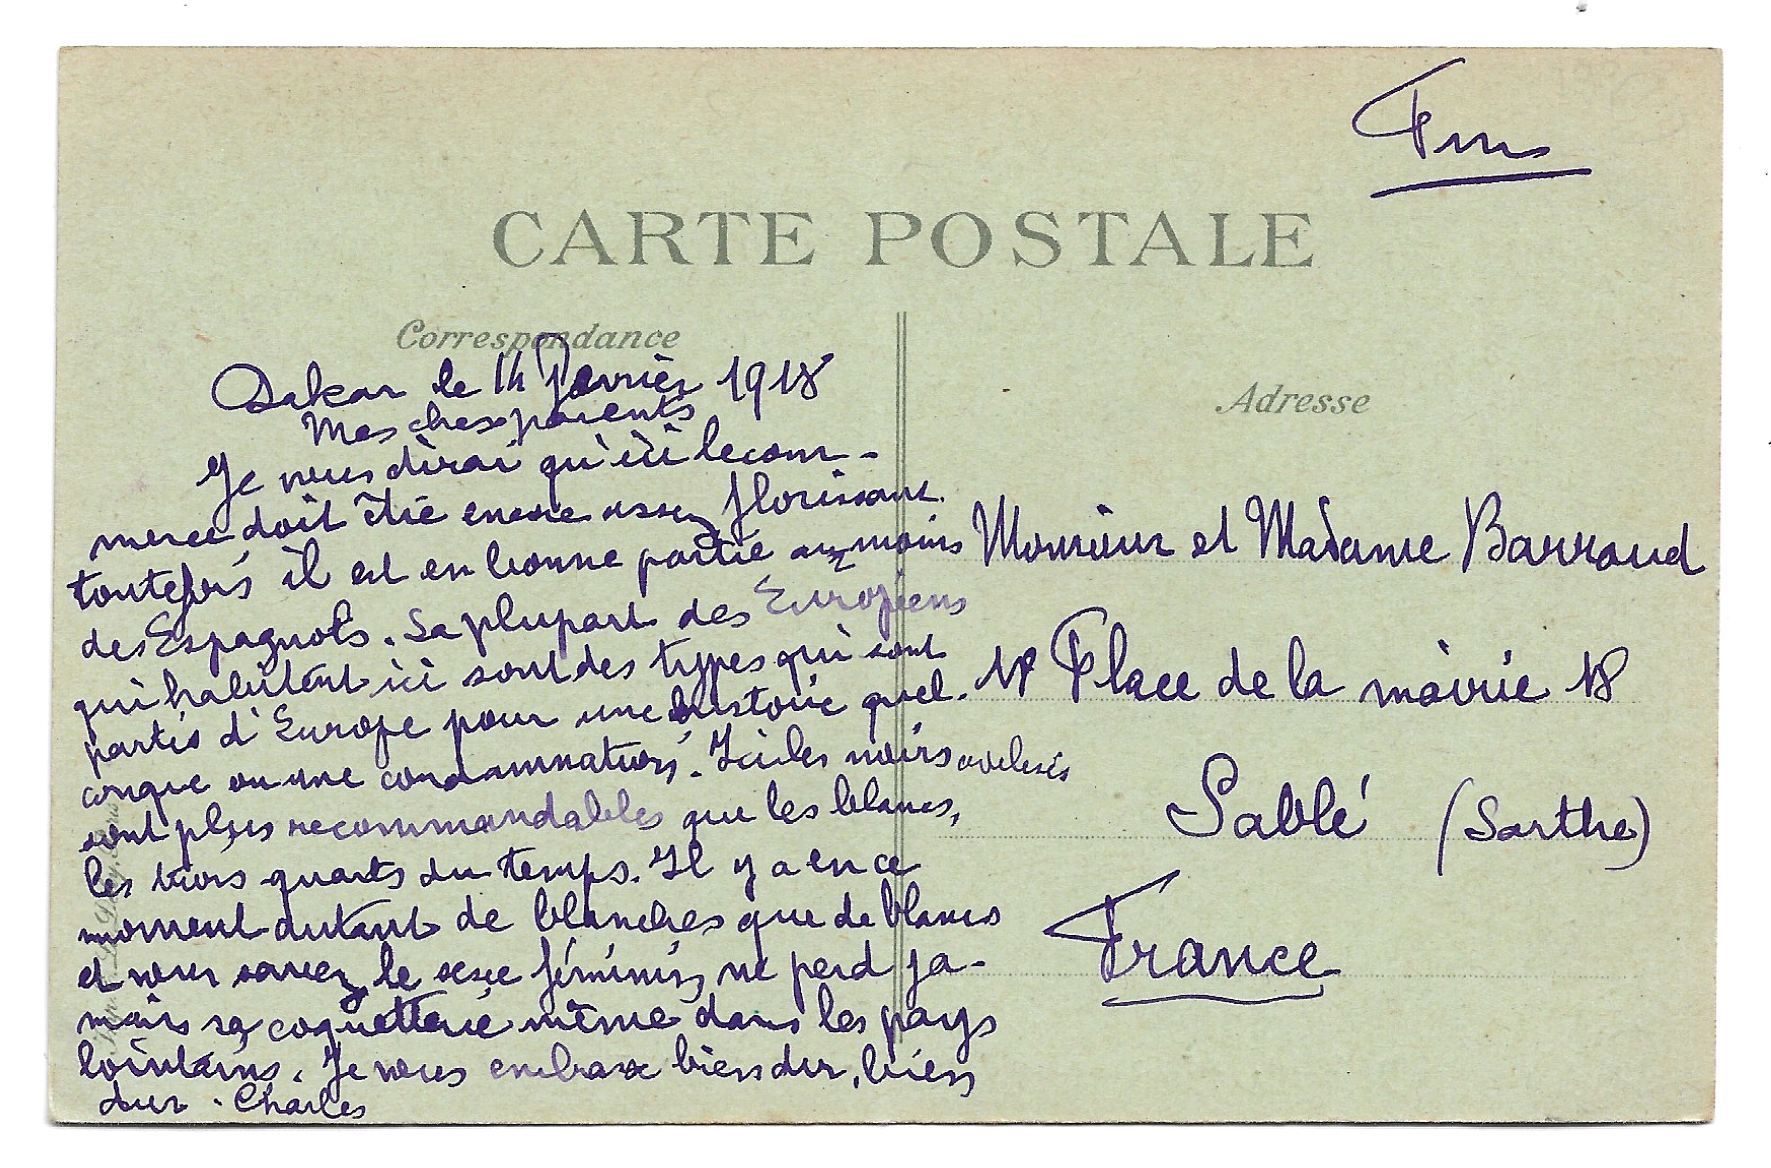 CARTE POSTALE
Correspondance
Dakar le 14 Février 1918
Mes chers parents
Je vous dirai qu'ici le com-
merce doit être encore assez florissant.
toutefois il est en bonne partie aux moins
des Espagnols. La plupart des Européens
qui habitent ici sont des types qui sont
partis d'Europe pour une histoire quel-
conque ou une condamnation. Ici les noirs
sont plus recommandables que les blancs,
les trois quarts du temps. Il y a en ce
moment autant de blanches que de blancs
et vous savez le sexe féminin ne perd ja-
mais sa coquetterie même dans les pays
lointains. Je vous embrasse bien dur, bien
dur. Charles
Adresse
Monsieur et Madame Barraud
18 Place de la mairie 18
Sablé (Sarthe)
France